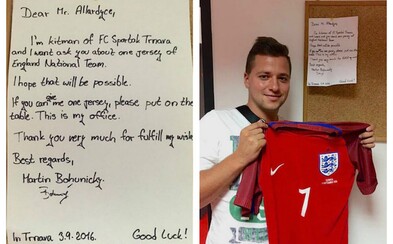 Dear Mr. Allardyce,
I'm kitman of FC Spartak Trnava
and I want ask you about one jersey of
England National Team.
I hope that will be possible.
If you can give me one jersey, please put on the
table. This is my office.
Thank you very much for fulfill my wish.
Best regards,
Martin Bohunický
In Trnava 3.9.2016. Good Luck!
7